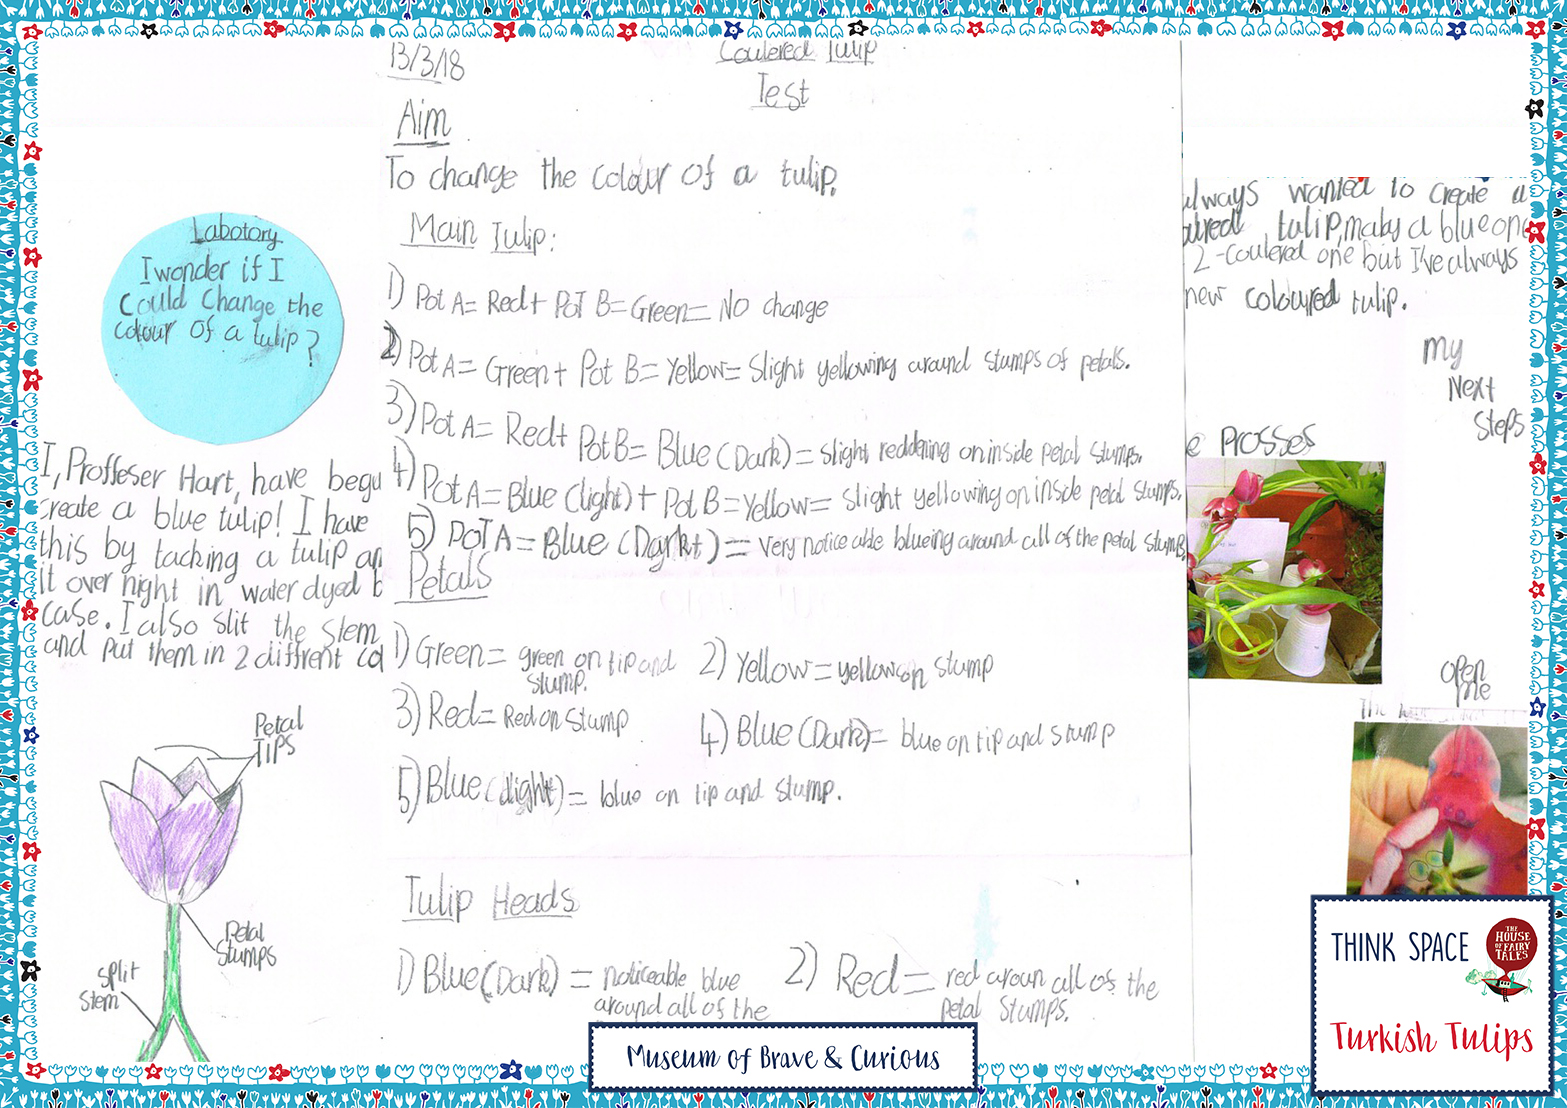 Labotory
I wonder if I
Could Change the
colour of a tulip?
I, Proffeser Hart, have begu
create a blue tulip! I have
this by tacking a tulip an
it over night in water dyed b
case. I also slit the stem
and put them in 2 diffrent co
Petal
TIPS
Petal
Stumps
split
Stem
13/3/18
Coulered Tulip
Test
Aim
To change the colour of a tulip.
Main Tulip:
1) Pot A= Red+ Pot B=Green= No change
2) Pot A= Green+ Pot B= Yellow= Slight yellowing around stumps of petals.
3) Pot A= Red+ Pot B= Blue (Dark) = slight reddening on inside petal stumps.
4) Pot A= Blue (light) + Pot B=Yellow= slight yellowing on inside petal stumps.
5) Pot A= Blue (Dark+) = very notice able blueing around all of the petal stumps
Petals
1) Green= green on tip and
stump.
2) Yellow= yellow on stump
3) Red= Red on Stump
4) Blue (Dark)= blue on tip and stump
5) Blue (light) = blue on tip and stump.
Tulip Heads
1) Blue (Dark) = noticeable blue
around all of the
2) Red= red aroun all of the
petal stumps.
always wanted to create a
oured tulip, maby a blue one
2-coulered one but I've always
new coloured tulip.
My
Next
Steps
e Prosses
open
me
THINK SPACE
THE
HOUSE
OF FAIRY
TALES
Turkish Tulips
Museum of Brave & Curious